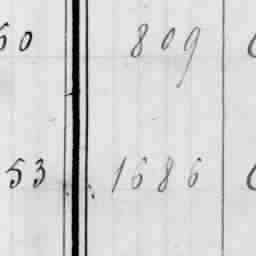 60 809
53 1686